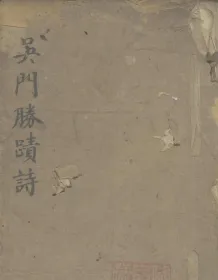 吳門勝蹟詩